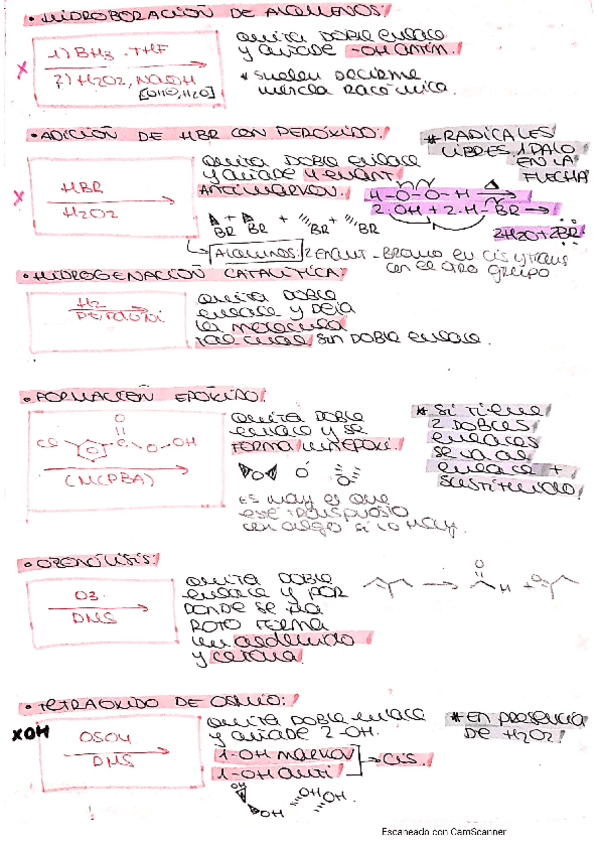 • HIDROBORACIÓN DE ALQUENOS!
1) BH3 · THF
2) H2O2, NaOH
[OHΘ, H2O]
quita doble enlace
y añade -OH antim.!
* suelen decirme
mezcla racémica.
X
• ADICIÓN DE HBR CON PERÓXIDO:!
HBR
H2O2
X
quita doble enlace
y añade y enant
ANTIMARKOV.
* RADICALES
LIBRES 1 PALO
EN LA
FLECHA
H-O-O-H Δ
2·OH + 2·H-BR
2H2O + 2BR
BR + BR + BR + BR
Alquinos: 2 enant - Bromo en cis y trans
con el otro grupo
• HIDROGENACIÓN CATALÍTICA!
H2
quita doble
enlace y deja
la molécula
tal cual sin doble enlace.
• FORMACIÓN EPÓXIDO!
O
Cl C O OH
(MCPBA)
quita doble
enlace y se
FORMA
O O O
Es muy es que
esté transpuesto
con algo si lo hay.
* si tiene
2 dobles
enlaces
se va al
enlace +
sustituido!
• OZONÓLISIS!
O3
DMS
quita doble
enlace y por
donde se ha
roto forma
un aldehído
y cetona.
O H + O
• TETRAÓXIDO DE OSMIO:!
XOH
OSO4
DMS
quita doble enlace
y añade 2 -OH.
1-OH markov
1-OH anti
cis.!
* EN PRESENCIA
DE H2O2!
OH OH OH OH
Escaneado con CamScanner